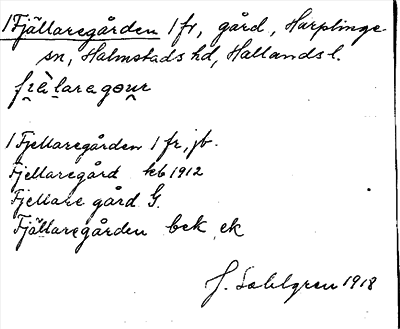 1 Fjällaregården 1 fr, gård, Harplinge
sn, Halmstads hd, Hallands l.
1 Fjellaregården 1 fr, jb.
Fjellaregård kb 1912
Fjellare gård G.
Fjällaregården bek ek
J. Sahlgren 1918